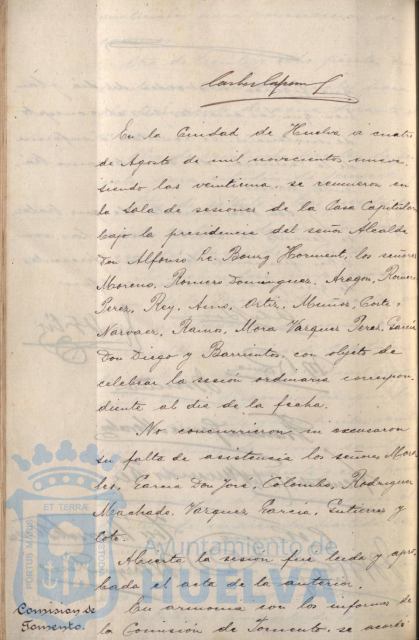 En la Ciudad de Huelva á cuatro
de Agosto de mil novecientos nueve
siendo las veintiuna, se reunieron en
la Sala de sesiones de la Casa Capitular
bajo la presidencia del señor Alcalde
Don Alfonso Le Bourg Horment, los señores
Moreno, Romero Dominguez, Aragon, Romero
Perez, Rey, Amo, Ortiz, Muñoz, Cortés,
Narvaez, Ramos, Mora Vazquez Perez, Garcia
Don Diego y Barrientos, con objeto de
celebrar la sesión ordinaria correspon-
diente al dia de la fecha.
No concurrieron ni excusaron
su falta de asistencia los señores
Garcia Don José, Colombo, Rodriguez
Machado, Vazquez Garcia, Gutierrez y
Abierta la sesión fue leida y apro-
bada el acta de la anterior.
Comision de
Fomento.
En armonia con los informes de
la Comisión de Fomento, se acordó
PORTUS MARIS
ET TERRÆ
CUSTODIA
Ayuntamiento de
HUELVA